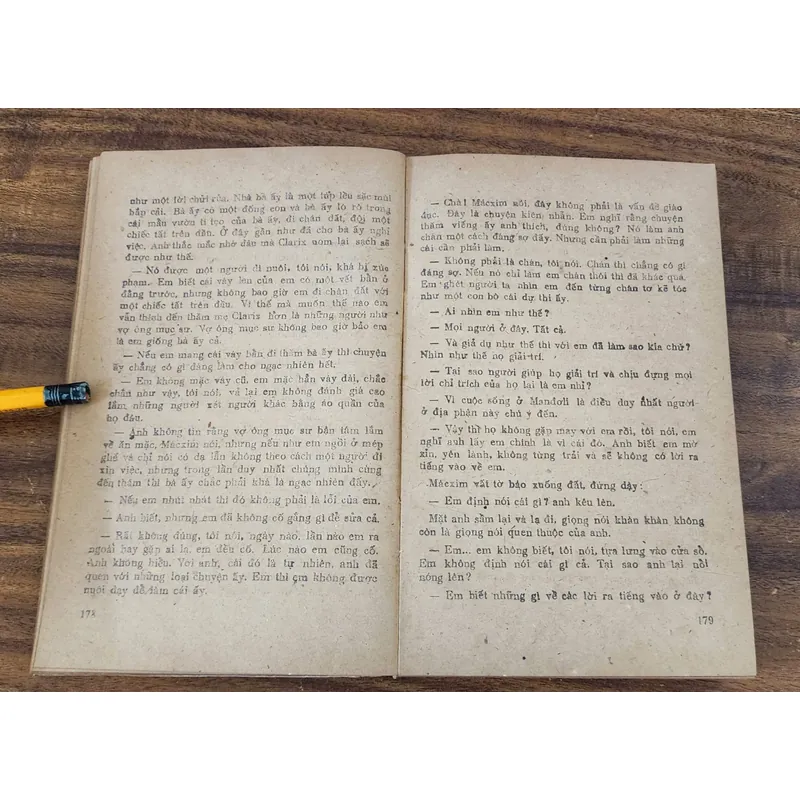 như một lời chửi rủa. Nhà bà ấy là một túp lều sặc mùi
bắp cải. Bà ấy có một đống con và bà ấy lò rò trong
cái mẩu vườn tí tẹo của bà ấy, đi chân đất, đội một
chiếc tất trên đầu. Ở đây gần như đã cho bà ấy nghỉ
việc. Anh thắc mắc nhờ đâu mà Clarix nom lại sạch sẽ
được như thế.
— Nó được một người dì nuôi, tôi nói, khá bị xúc
phạm. Em biết cái váy len của em có một vết bẩn ở
đằng trước, nhưng không bao giờ em đi chân đất với
một chiếc tất trên đầu. Vì thế mà muốn thế nào em
vẫn thích đến thăm mẹ Clarix hơn là những người như
vợ ông mục sư. Vợ ông mục sư không bao giờ bảo em
là em giống bà ấy cả.
— Nếu em mang cái váy bẩn đi thăm bà ấy thì chuyện
ấy chẳng có gì đáng làm cho ngạc nhiên hết.
— Em không mặc váy cũ, em mặc hẳn váy dài, chắc
chắn như vậy, tôi nói, và lại em không đánh giá cao
lắm những người xét người khác bằng áo quần của
họ đâu.
— Anh không tin rằng vợ ông mục sư bận tâm lắm
về ăn mặc, Mácxim nói, nhưng nếu như em ngồi ở mép
ghế và chỉ nói có dạ lẫn không theo cách một người đi
xin việc, như trong lần duy nhất chúng mình cùng
đến thăm thì bà ấy chắc phải khá là ngạc nhiên đấy.
— Nếu em nhút nhát thì đó không phải là lỗi của em.
— Anh biết, nhưng em đã không cố gắng gì để sửa cả.
— Rất không đúng, tôi nói, ngày nào, lần nào em ra
ngoài hay gặp ai lạ, em đều cố. Lúc nào em cũng cố.
Anh không hiểu. Với anh, cái đó là tự nhiên, anh đã
quen với những loại chuyện ấy. Em thì em không được
nuôi dạy để làm cái ấy.
178
— Chà! Mácxim nói, đây không phải là vấn đề giáo
dục. Đây là chuyện kiên nhẫn. Em nghĩ rằng chuyện
thăm viếng ấy anh thích, đáng không? Nó làm anh
chán một cách đáng sợ đấy. Nhưng cần phải làm những
cái cần phải làm.
— Không phải là chán, tôi nói. Chán thì chẳng có gì
đáng sợ. Nếu nó chỉ làm em chán thôi thì đã khác quá.
Em ghét người ta nhìn em đến từng chân tơ kẽ tóc
như một con bò cái dự thi ấy.
— Ai nhìn em như thế?
— Mọi người ở đây. Tất cả.
— Và giả dụ như thế thì với em đã làm sao kia chứ?
Nhìn như thế nó giải trí.
— Tại sao người giúp họ giải trí và chịu đựng mọi
lời chỉ trích của họ lại là em nhỉ?
— Vì cuộc sống ở Manđơli là điều duy nhất người
ở địa phận này chú ý đến.
— Vậy thì họ không gặp may với em rồi, tôi nói, em
nghĩ anh lấy em chính là vì cái đó. Anh biết em mờ
xỉn, yên lành, không từng trải và sẽ không có lời ra
tiếng vào về em.
Mácxim vất tờ báo xuống đất, đứng dậy:
— Em định nói cái gì? anh kêu lên.
Mặt anh sầm lại và lạ đi, giọng nói khàn khàn không
còn là giọng nói quen thuộc của anh.
— Em... em không biết, tôi nói, tựa lưng vào cửa sổ.
Em không định nói cái gì cả. Tại sao anh lại nổi
nóng lên?
— Em biết những gì về các lời ra tiếng vào ở đây?
179